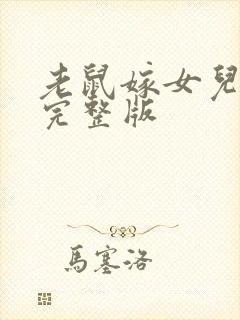 老鼠嫁女兒
完整版
馬塞洛